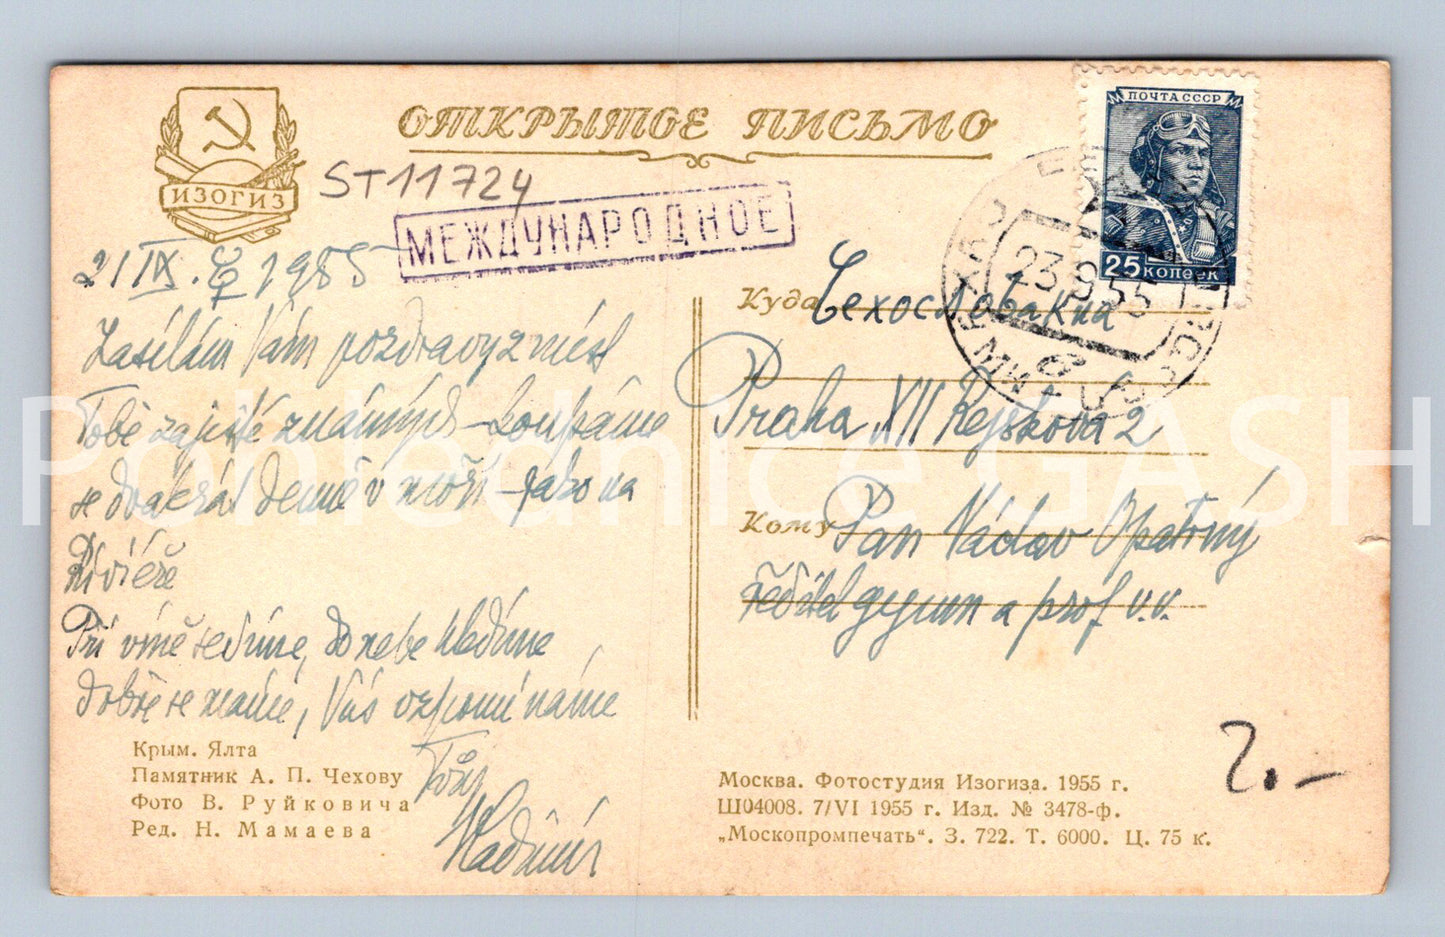 ОТКРЫТОЕ ПИСЬМО
ИЗОГИЗ
ST11724
МЕЖДУНАРОДНОЕ
ПОЧТА СССР
25 КОПЕЕК
23.9.55
21 IX. 1955
Zasílám Vám pozdravy z míst
Tobě zajisté známých – koupáme
se dvakrát denně v moři – jako na
Riviéře
Při víně sedíme, do nebe hledíme
dobře se máme, Vás vzpomínáme
Tvůj
Vladimír
Куда Чехословакиа
Praha XII Kejřkova 2
Кому Pan Václav Opatrný
ředitel gymn a prof v.v.
Крым. Ялта
Памятник А. П. Чехову
Фото В. Руйковича
Ред. Н. Мамаева
Москва. Фотостудия Изогиза. 1955 г.
Ш04008. 7/VI 1955 г. Изд. № 3478-ф.
„Москопромпечать“. З. 722. Т. 6000. Ц. 75 к.
2.–
Pohlednice GASH